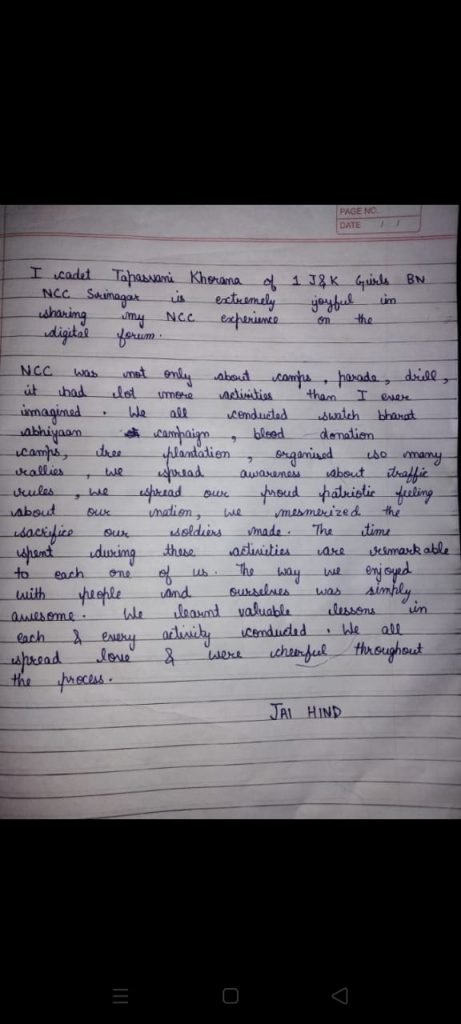 PAGE NO.
DATE / /
I cadet Tapassvani Khorana of 1 J&K Girls BN
NCC Srinagar is extremely joyful in
sharing my NCC experience on the
digital forum.
NCC was not only about camps, parade, drill,
it had lot more activities than I ever
imagined. We all conducted swatch bharat
abhiyaan campaign, blood donation
camps, tree plantation, organised so many
rallies, we spread awareness about traffic
rules, we spread our proud patriotic feeling
about our nation, we mesmerized the
sacrifice our soldiers made. The time
spent during these activities are remarkable
to each one of us. The way we enjoyed
with people and ourselves was simply
awesome. We learnt valuable lessons in
each & every activity conducted. We all
spread love & were cheerful throughout
the process.
JAI HIND